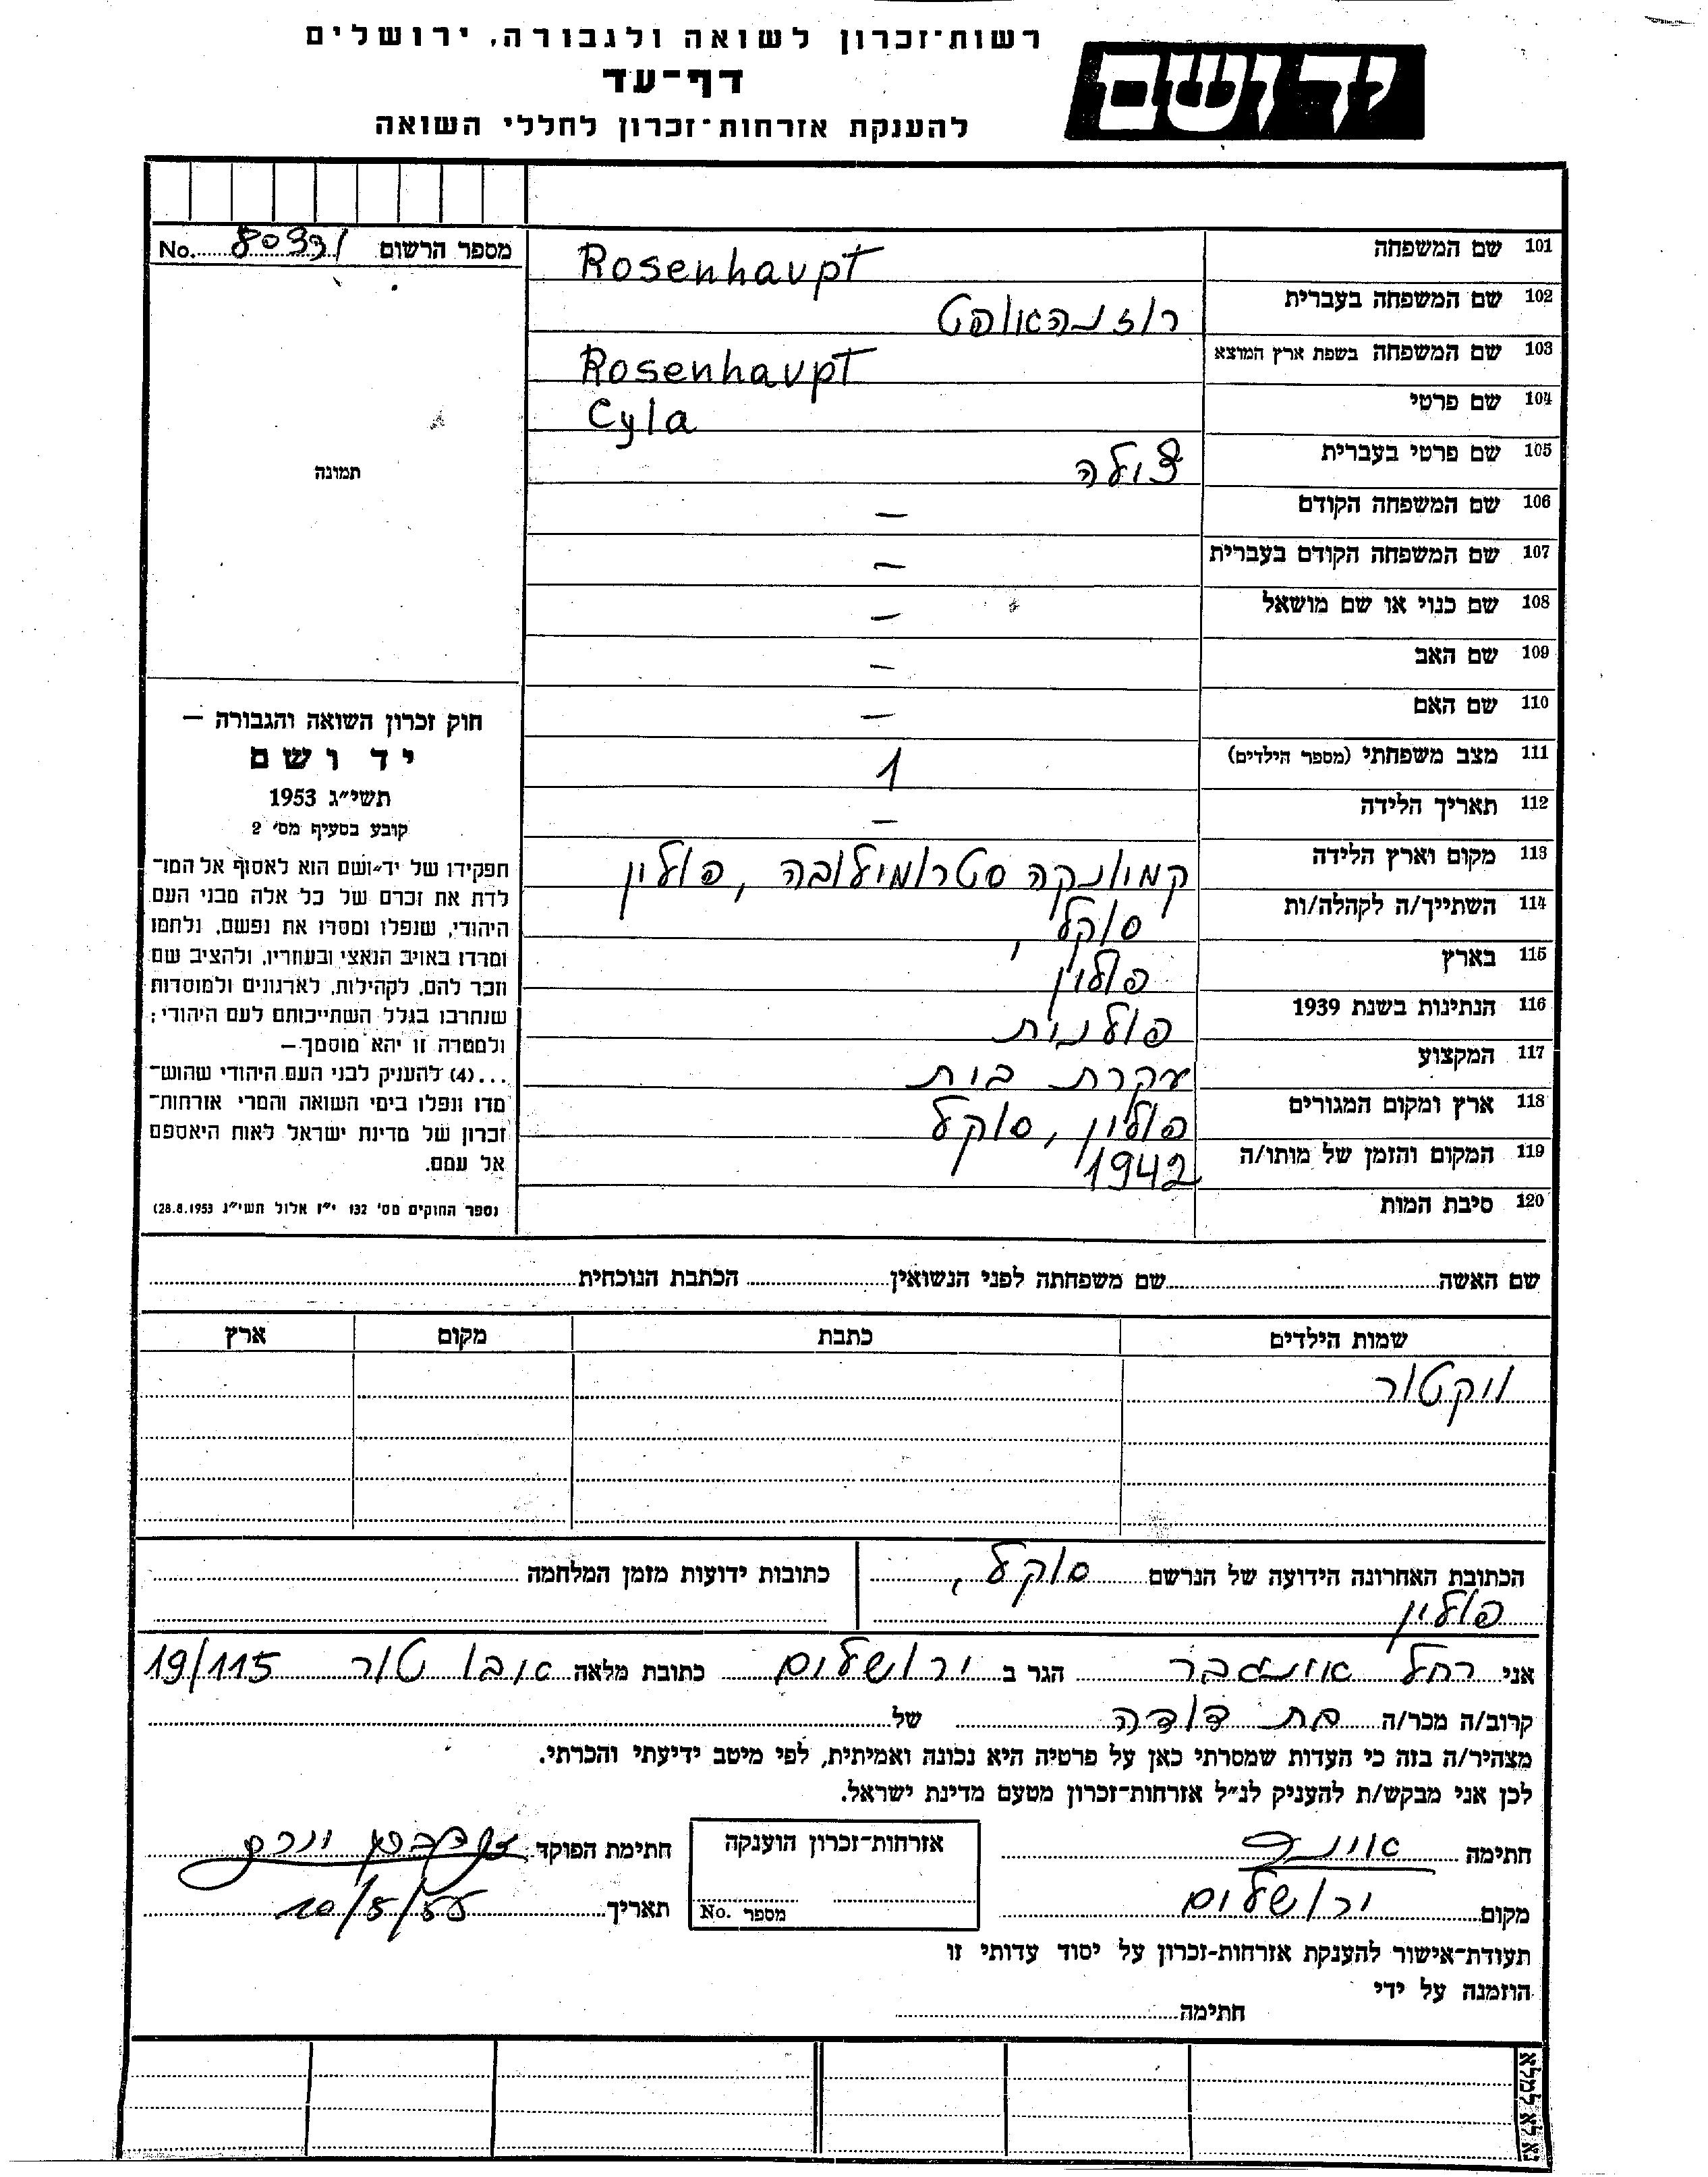 רשות־זכרון לשואה ולגבורה, ירושלים
דף־עד
להענקת אזרחות־זכרון לחללי השואה
יד ושם
מספר הרשום 80331 No.
101 שם המשפחה Rosenhaupt
102 שם המשפחה בעברית רוזנהאופט
103 שם המשפחה בשפת ארץ המוצא Rosenhaupt
104 שם פרטי Cyla
105 שם פרטי בעברית צילה
106 שם המשפחה הקודם –
107 שם המשפחה הקודם בעברית –
108 שם כנוי או שם מושאל –
109 שם האב –
110 שם האם –
111 מצב משפחתי (מספר הילדים) 1
112 תאריך הלידה –
113 מקום וארץ הלידה קמיונקה סטרומילובה, פולין
114 השתייך/ה לקהלה/ות סוקל,
115 בארץ פולין
116 הנתינות בשנת 1939 פולנית
117 המקצוע עקרת בית
118 ארץ ומקום המגורים פולין, סוקל
119 המקום והזמן של מותו/ה 1942
120 סיבת המות
תמונה
חוק זכרון השואה והגבורה –
יד ושם
תשי״ג 1953
קובע בסעיף מס' 2
תפקידו של יד־ושם הוא לאסוף אל המו־
לדת את זכרם של כל אלה מבני העם
היהודי, שנפלו ומסרו את נפשם, נלחמו
ומרדו באויב הנאצי ובעוזריו, ולהציב שם
וזכר להם, לקהילות, לארגונים ולמוסדות
שנחרבו בגלל השתייכותם לעם היהודי;
ולמטרה זו יהא מוסמך–
...(4) להעניק לבני העם היהודי שהוש־
מדו ונפלו בימי השואה והמרי אזרחות־
זכרון של מדינת ישראל לאות היאספם
אל עמם.
(ספר החוקים מס' 132 י״ז אלול תשי״ג 28.8.1953)
שם האשה שם משפחתה לפני הנשואין הכתבת הנוכחית
שמות הילדים כתבת מקום ארץ
ויקטור
הכתובת האחרונה הידועה של הנרשם סוקל, כתובות ידועות מזמן המלחמה
פולין
אני רחל הגר ב ירושלים כתובת מלאה אבו טור 19/115
קרוב/ה מכר/ה בת דודה של
מצהיר/ה בזה כי העדות שמסרתי כאן על פרטיה היא נכונה ואמיתית, לפי מיטב ידיעתי והכרתי.
לכן אני מבקש/ת להעניק לנ״ל אזרחות־זכרון מטעם מדינת ישראל.
חתימה אזרחות־זכרון הוענקה חתימת הפוקד
מקום ירושלים מספר No. תאריך 10/5/55
תעודת־אישור להענקת אזרחות-זכרון על יסוד עדותי זו
הוזמנה על ידי
חתימה
נא לא למלא